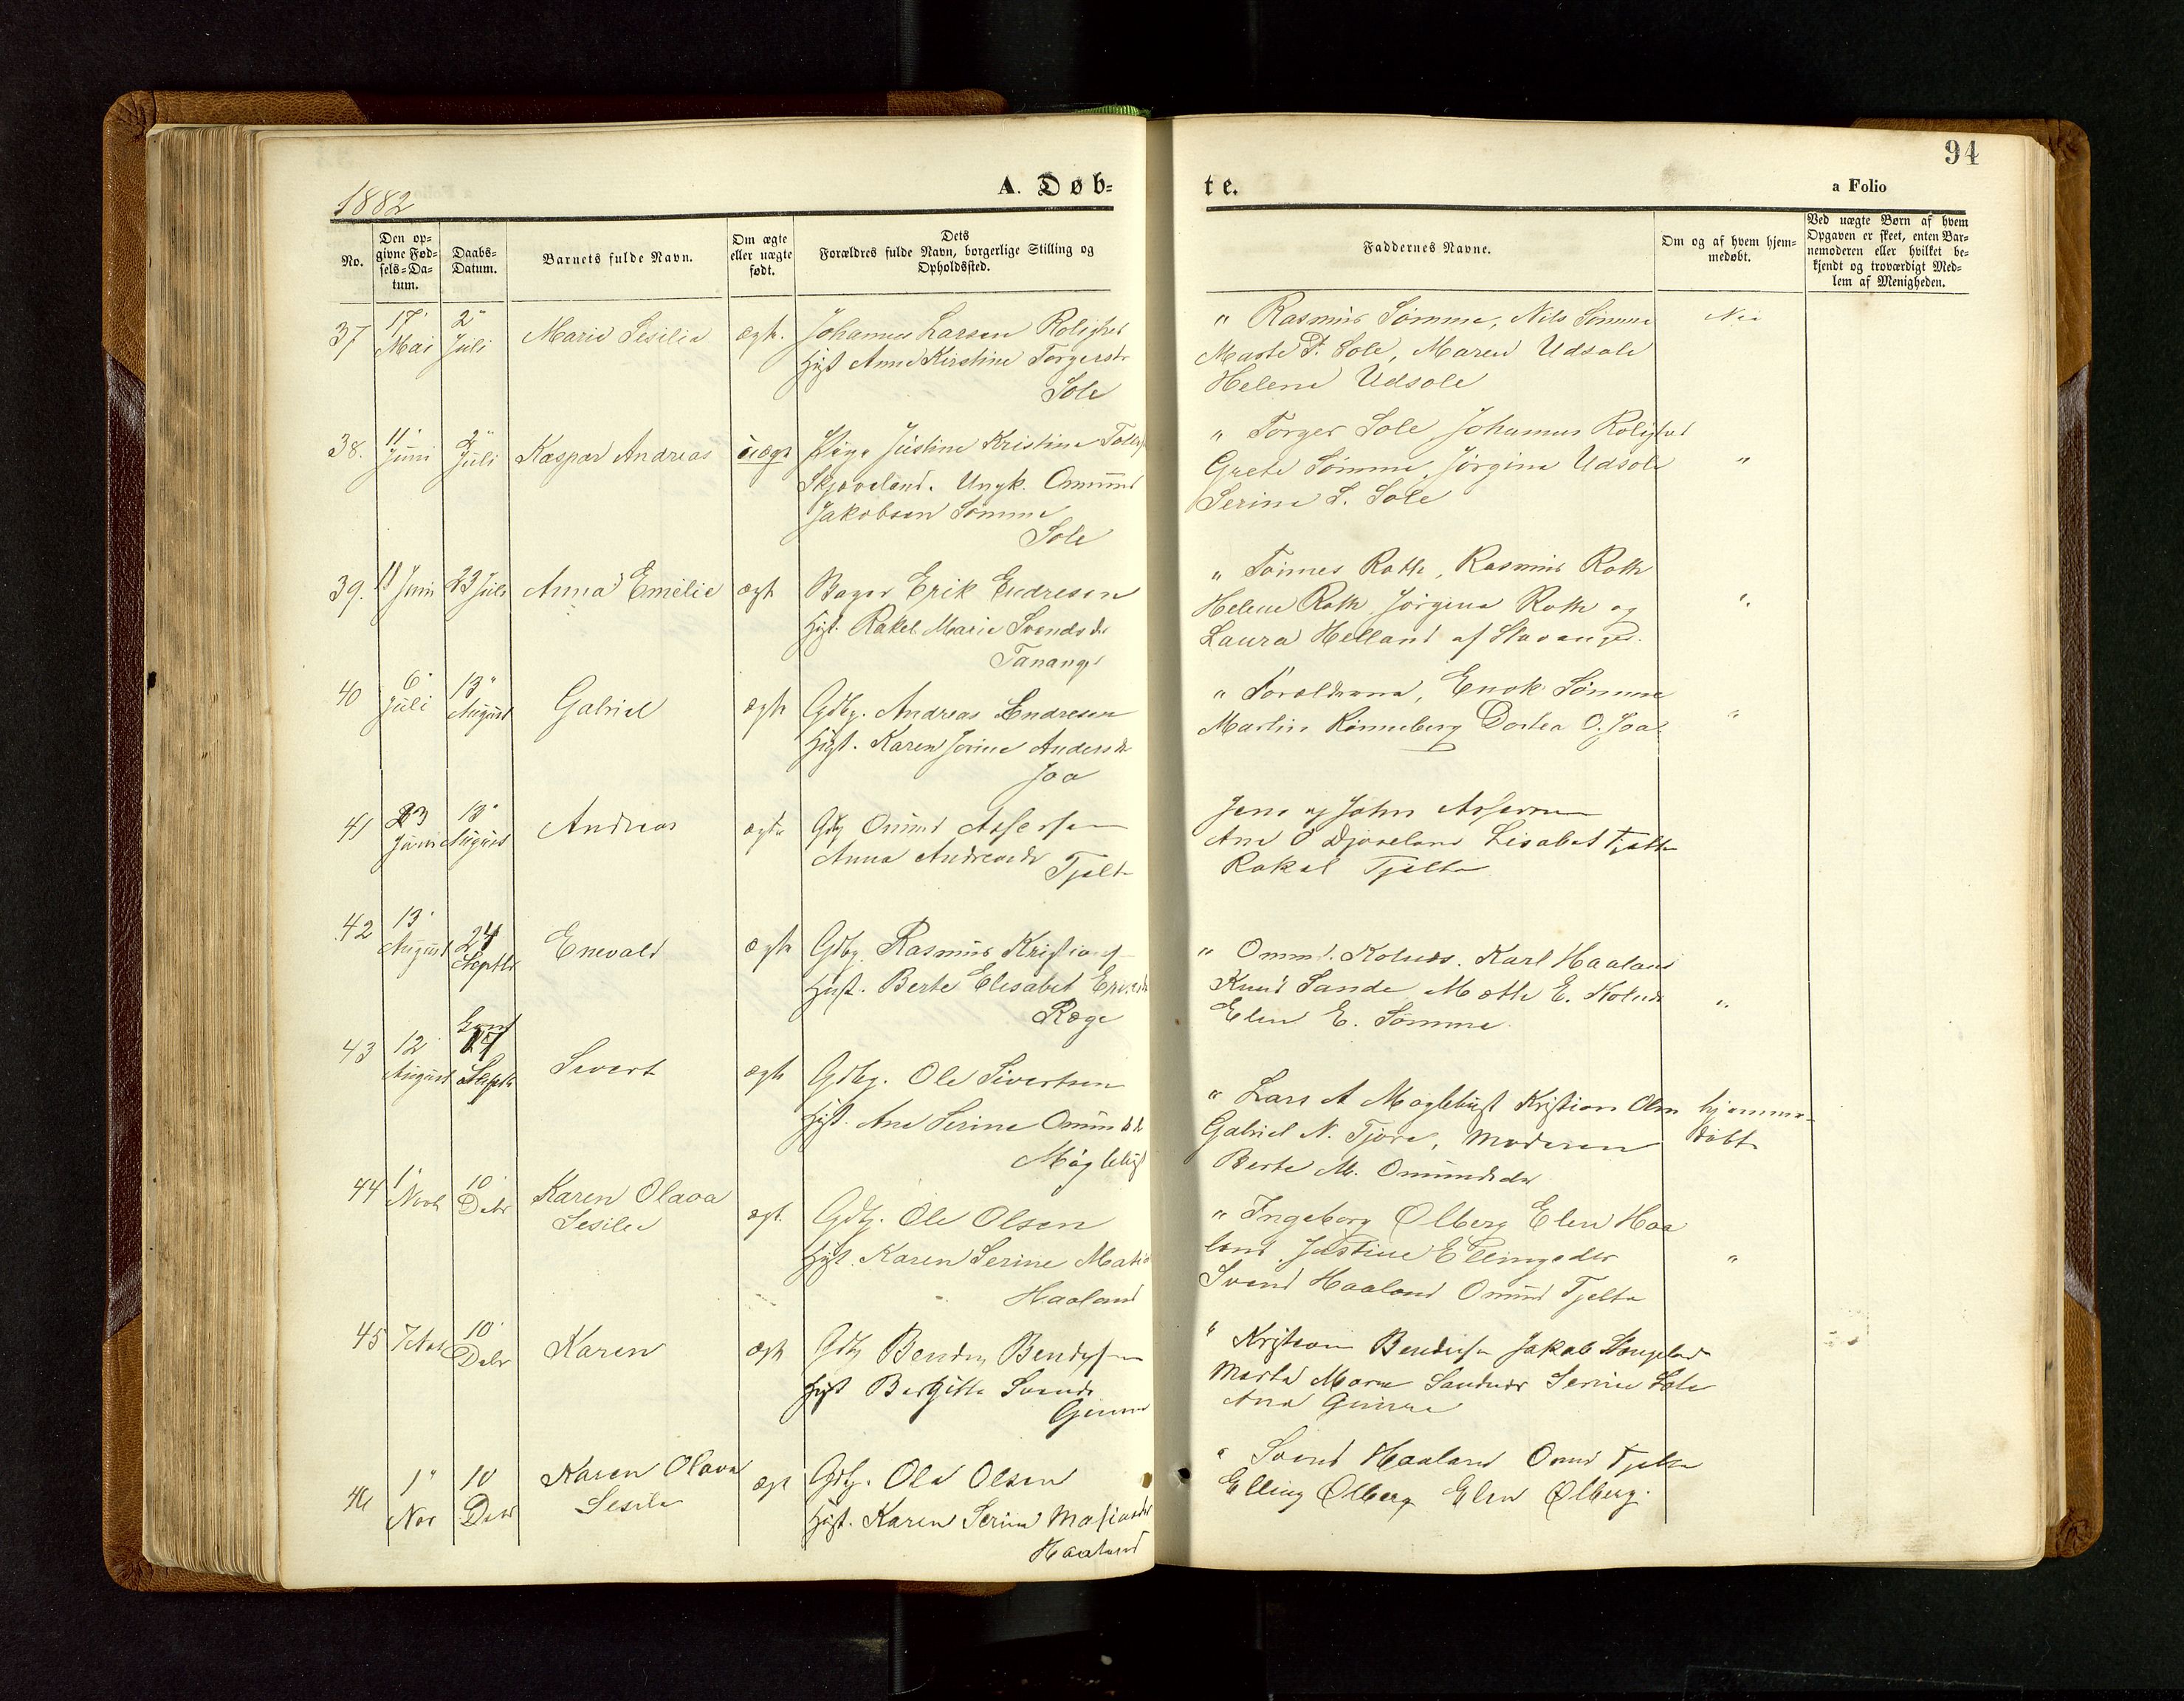 94
1882
A. Døb=
te.
a Folio
No.
Den op=
givne Fød=
sels=Da=
tum.
Daabs=
Datum.
Barnets fulde Navn.
Om ægte
eller uægte
født.
Dets
Forældres fulde Navn, borgerlige Stilling og
Opholdssted.
Faddernes Navne.
Om og af hvem hjem=
medøbt.
Ved uægte Børn af hvem
Opgaven er skeet, enten Bar=
nemoderen eller hvilket be=
kjendt og troværdigt Med=
lem af Menigheden.
37
17
Mai
2"
Juli
Marie Sesilie
ægt.
Johannes Larsen Rolighed
Hust Anne Kirstine Torgersdr
Sole
" Rasmus Sömme, Nils Sömme
Marte T. Sole, Maren Udsole
Helene Udsole
Nei
38.
11
Juni
2"
Juli
Kaspar Andreas
uægt
Pige Justine Kristine
Skjæveland. Ungk. Omund
Jakobsen Sömme
Sole
" Torger Sole Johannes Rolighed
Grete Sömme, Jörgine Udsole
Serine L. Sole
"
39.
11 Juni
23 Juli
Anna Emelie
ægt
Bager Erik Endresen
Hust. Rakel Marie Svendsdr
Tananger
" Tönnes Roth, Rasmus Roth
Helene Roth Jörgine Roth og
Laura Helland af Stavanger.
"
40
6"
Juli
13"
August
Gabriel
ægte
Gdbg. Andreas Endresen
Hust. Karen Jorine Andersdr
Joa
" Forældrene, Enok Sömme
Martin Rönneberg Dortea O. Joa
"
41
23
Juni
13"
August
Andreas
ægte
Gdbg Omund Assersen
Anna Andreasdr
Tjelte
Jens og John Assersen
Ane O Djöseland Lisabet Tjelte
Rakel Tjelte
42
13
August
24
Septbr
Enevald
ægte
Gdbg. Rasmus Kristians
Hust. Berte Elisabet
Ræge
" Omund Kolnes. Karl Haaland
Knud Sande Mette E. Kolnes
Elen E. Sömme.
"
43
12
August
Septb
Sivert
ægte
Gdbg. Ole Sivertsen
Hust. Ane Serine Omundsdr
" Lars A Kristian Olsen
Gabriel N. Tjora, Moderen
Berte M. Omundsdr
hjemme-
döbt
44
1"
Novb
10
Debr
Karen Olava
Sesilie
ægt.
Gdbg. Ole Olsen
Hust. Karen Serine
Haaland
" Ingeborg Ølberg Elen Haa
land Justine Ellingsdr
Svend Haaland Omund Tjelte
"
45
7 Nov
10
Debr
Karen
ægte
Gdbg
Hust Bergitte
" Kristian Jakob
Marta Maren Serine Sole
Ana
46
1"
Nov
10
Debr
Karen Olava
Sesilie
ægt
Gdbg. Ole Olsen
Hust. Karen Serine
Haaland
" Svend Haaland Omund Tjelte
Elling Ølberg Elen Ølberg.